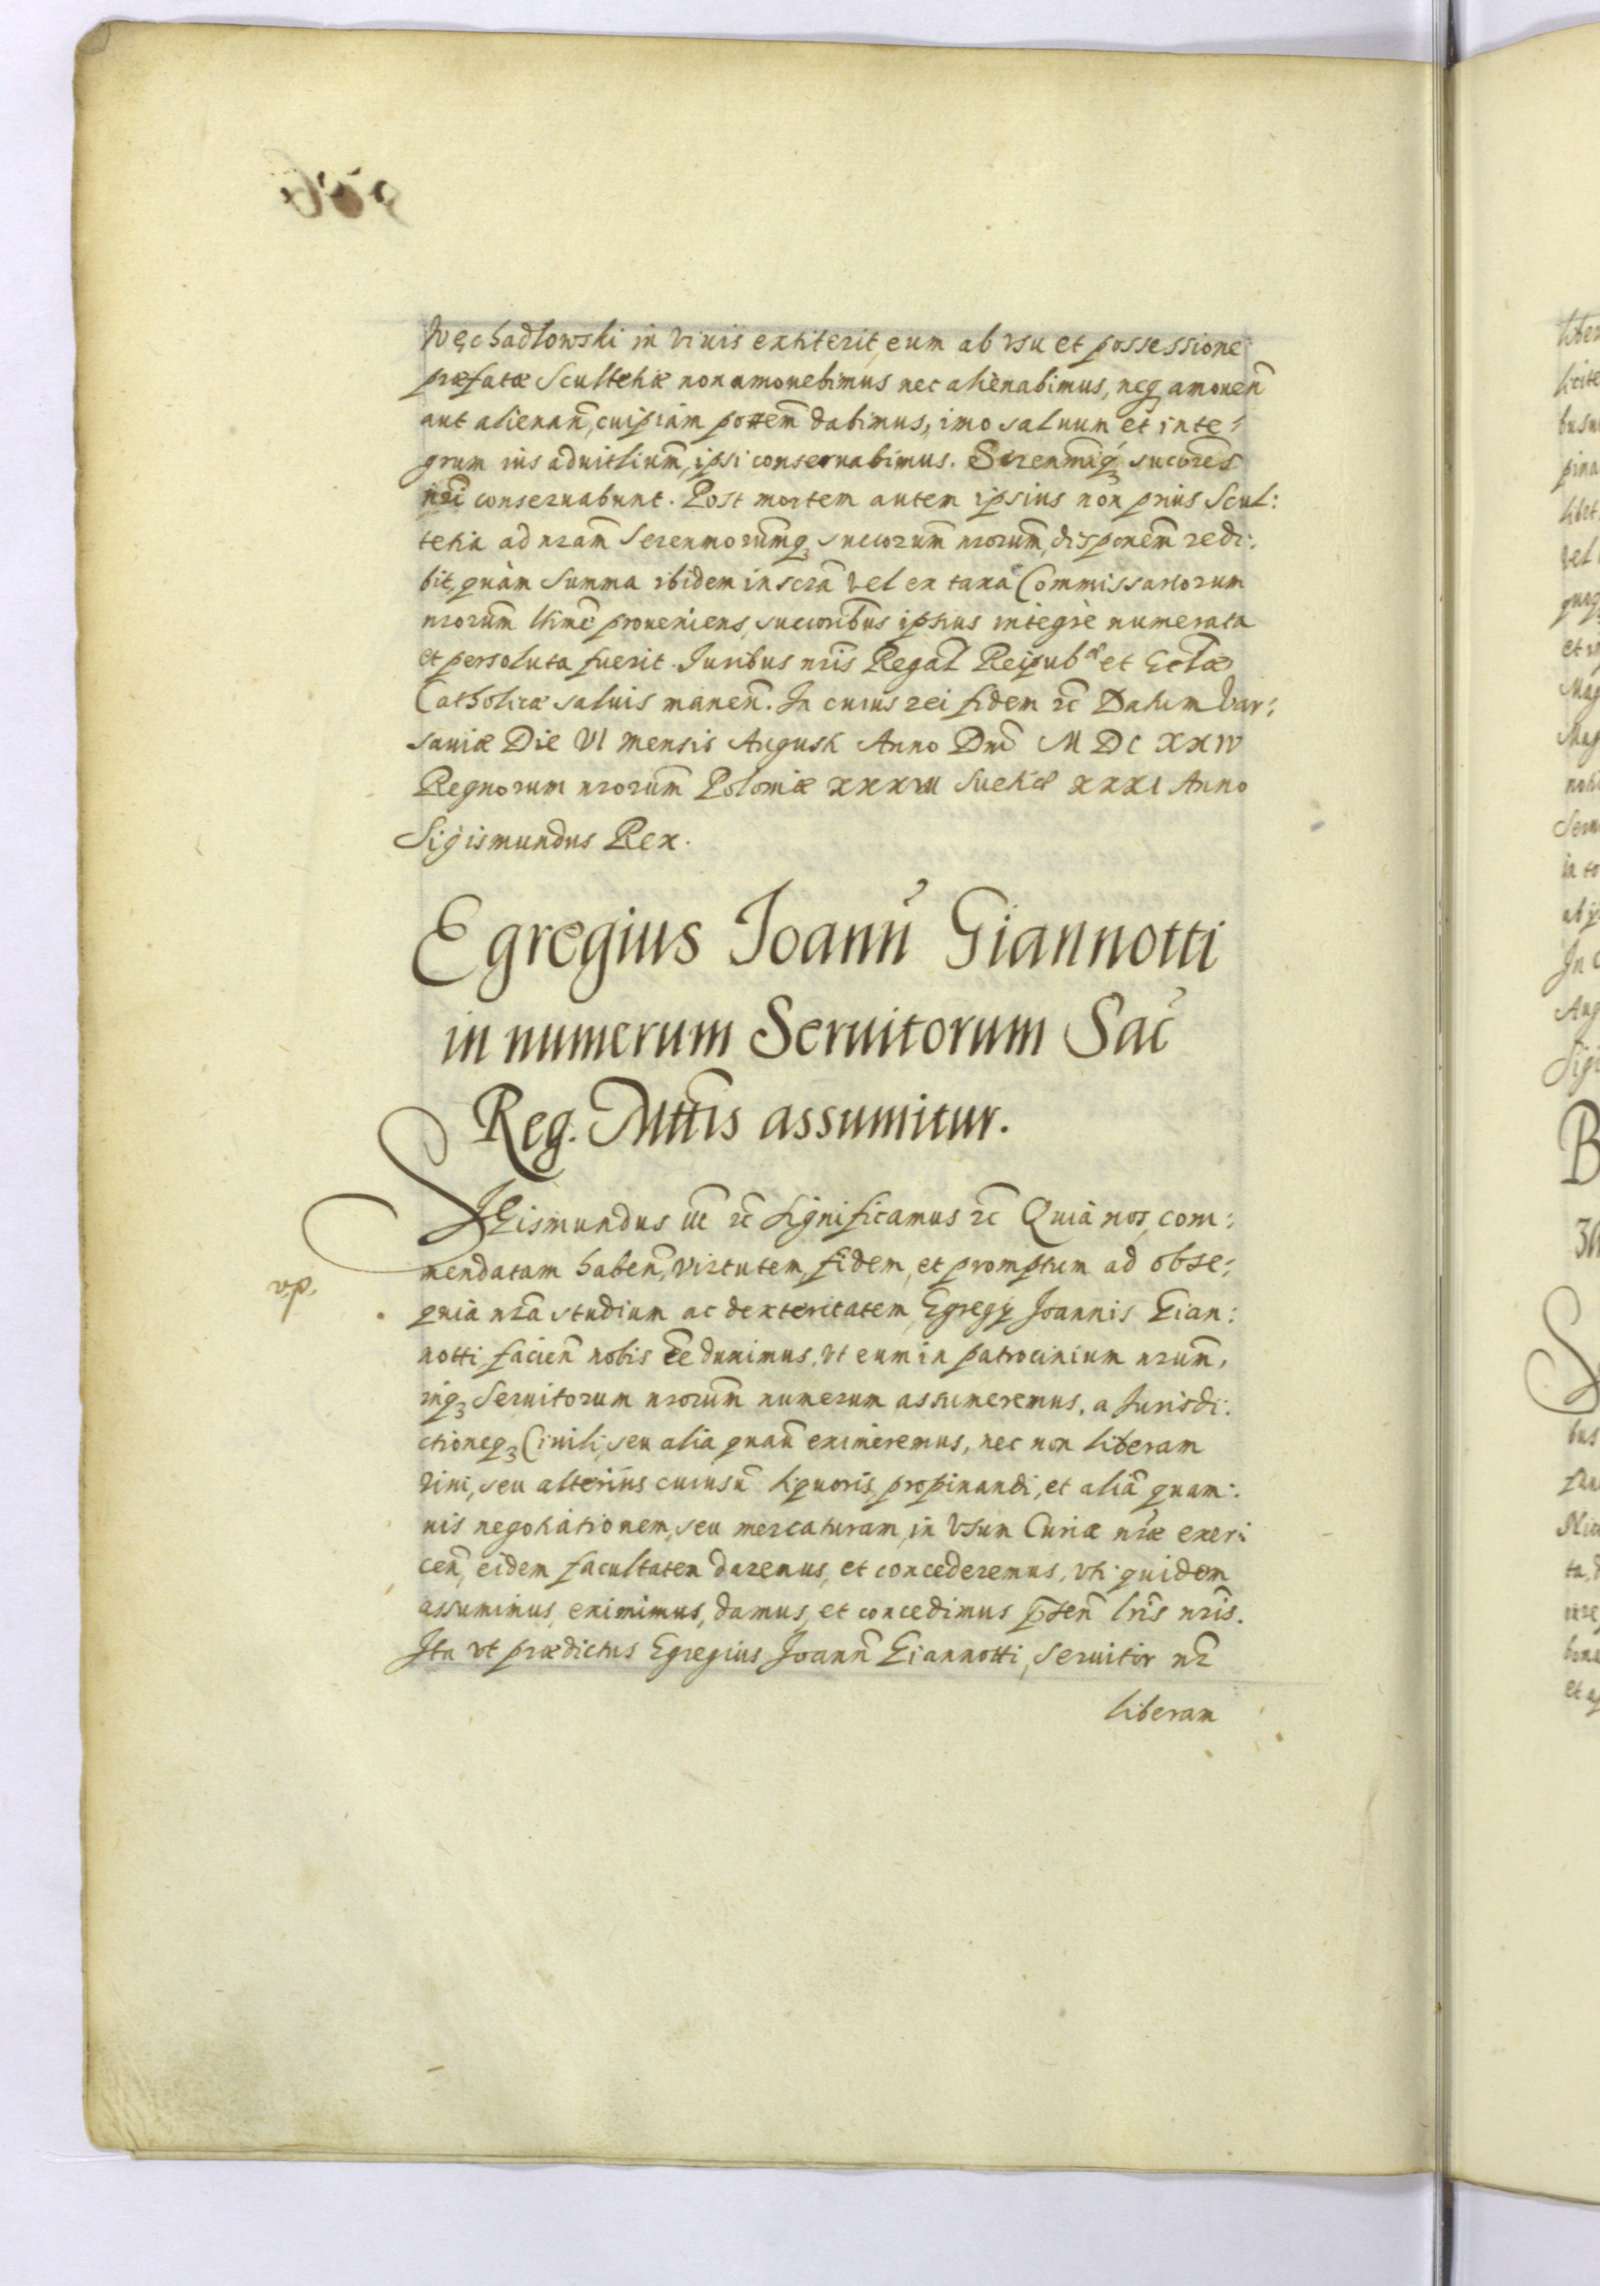 Węchadłowski in viuis extiterit, eum ab vsu et possessione
præfatæ Scultetiæ non amouebimus nec alienabimus, neq₃ amouen̄
aut alienan̄, cuipiam potem̄ dabimus, imo saluum et inte:
grum ius aduitlium̄, ipsi conseruabimus. Serenmiq₃ succores̄
nr̄i conseruabunt. Post mortem autem ipsius non prius Scul:
tetia ad nram̄ Serenmorumq₃ succorum̄ nrorum̄, disponem̄ redi:
bit, quàm Summa ibidem inscra vel ex taxa Commissariorum
nrorum̄ ltime proueniens, succoribus ipsius integrè numerata
et persoluta fuerit. Iuribus nris Regal Reipub.æ et Ecclæ
Catholicæ saluis manen̄. In cuius rei fidem rc̄ Datum Var:
sauiæ Die VI mensis Augusti Anno Dnī M DC XXIV
Regnorum nrorum̄ Poloniæ XXXVII Suetiæ XXXI Anno
Sigismundus Rex.
Egregius Ioann̄ Giannotti
in numerum Seruitorum Sac̄
Reg. Mttis assumitur.
SIgismundus ut̄ rc̄ Significamus rc̄ Quia nos, com:
mendatam haben̄, virtutem, fidem, et promptum ad obse:
v.p.
quia nrā studium ac dexteritatem, Egregij Joannis Gian:
notti, facien̄ nobis ee duximus, vt eum in patrocinium nrum̄,
inq₃ Seruitorum nrorum̄ numerum assumeremus, a Jurisdi:
ctioneq₃ Ciuili, seu alia quau̇ eximeremus, nec non liberam
vini, seu alterius cuiusū liquoris, propinandi, et aliā quam:
uis negotiationem, seu mercaturam, in Vsum Curiæ nræ exer:
cen̄, eidem facultatem daremus, et concederemus, vti quidem
assumimus, eximimus, damus, et concedimus p̄sen̄ lr̄is nr̄is.
Ita vt prædictus Egregius Joann̄ Giannotti, Seruitor nr̄
liberam